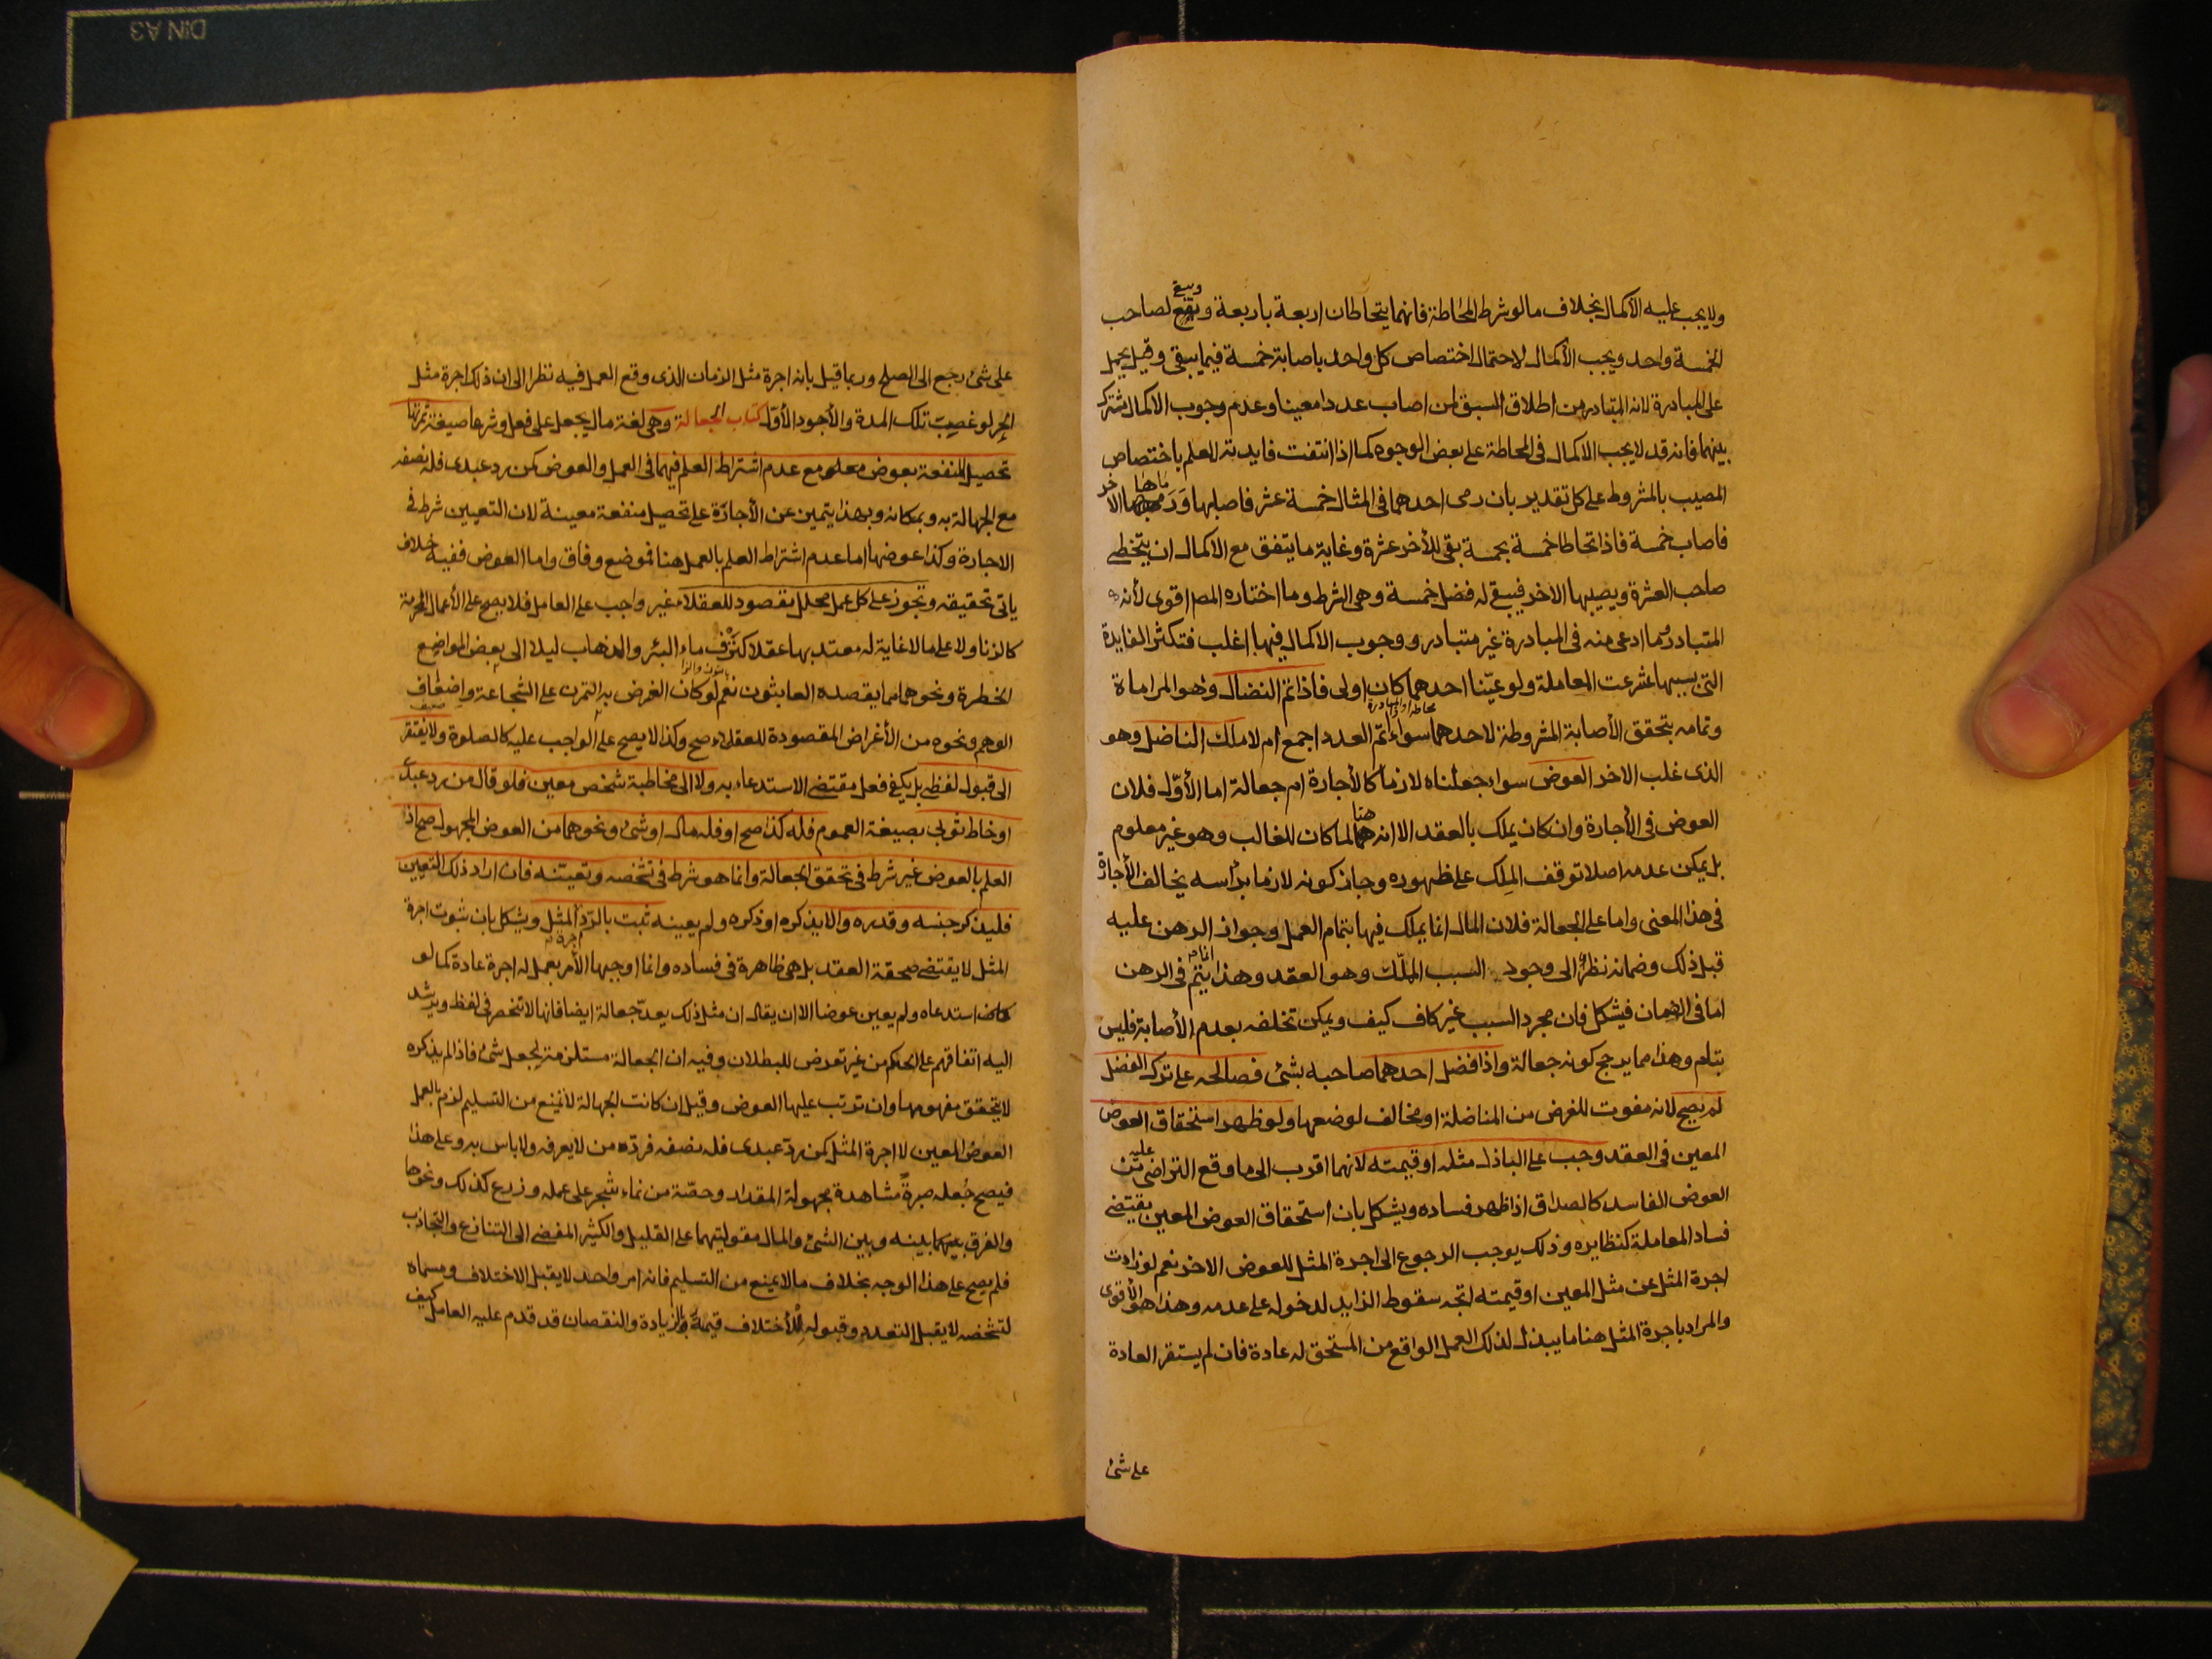 ولا يجب عليه الاكمال بخلاف ما لو شرط المحاطة فانهما يتحاطان اربعة باربعة ويبقى لصاحب
الخمسة واحد ويجب الاكمال لاحتمال اختصاص كل واحد باصابة خمسة فيما يبقى وقيل يحمل
على المبادرة لانه المتبادر من اطلاق السبق لمن اصاب عددا معينا وعدم وجوب الاكمال مشترك
بينهما فانه قد لا يجب الاكمال في المحاطة على بعض الوجوه كما اذا انتفت فايدته للعلم باختصاص
المصيب بالمشروط على كل تقدير بان رمى احدهما في المثال خمسة عشر فاصابها ورماها الاخر
فاصاب خمسة فاذا تحاطا خمسة بخمسة بقي للأخر عشرة وغاية ما يتفق مع الاكمال ان يتخطى
صاحب العشرة ويصيبها الاخر فيبقى له فضل خمسة وهي الشرط وما اختاره المص اقوى لأنه
المتبادر وما ادعى منه في المبادرة غير متبادر ووجوب الاكمال فيها اغلب فتكثر الفايدة
التي بسببها شرعت المعاملة ولو عيّنا احدهما كان اولى فاذا تم النضال وهو المراماة
وتمامه بتحقق الأصابة المشروطة لاحدهما سواء تم العدد اجمع ام لا ملك الناضل وهو
محاطة او المبادرة
الذي غلب الاخر العوض سواء جعلناه لازما كالأجارة ام جعالة اما الأوّل فلان
العوض في الأجارة وان كان يملك بالعقد الا انه هنا لما كان للغالب وهو غير معلوم
بل يمكن عدمه اصلا توقف الملك على ظهوره وجاز كونه لازما برأسه يخالف الأجارة
في هذا المعنى واما على الجعالة فلان المال انما يملك فيها بتمام العمل وجواز الرهن عليه
قبل ذلك وضمانه نظرا الى وجود السبب المملّك وهو العقد وهذا انما يتم في الرهن
اما في الضمان فيشكل فان مجرد السبب غير كاف كيف ويمكن تخلفه بعدم الأصابة فليس
بتام وهذا مما يرجح كونه جعالة واذا فضل احدهما صاحبه بشئ فصالحه على ترك الفضل
لم يصح لانه مفوت للغرض من المناضلة او مخالف لوضعها ولو ظهر استحقاق العوض
المعين في العقد وجب على الباذل مثله او قيمته لانهما اقرب الى ما وقع التراضي عليه من
العوض الفاسد كالصداق اذا ظهر فساده ويشكل بان استحقاق العوض المعين يقتضي
فساد المعاملة كنظايره وذلك يوجب الرجوع الى اجرة المثل للعوض الاخر نعم لو زادت
اجرة المثل عن مثل المعين او قيمته اتجه سقوط الزايد لدخوله على عدمه وهذا هو الأقوى
والمراد باجرة المثل هنا ما يبذل لذلك العمل الواقع من المستحق له عادة فان لم يستقر العادة
على شئ
على شئ رجع الى الصلح وربما قيل بانه اجرة مثل الزمان الذي وقع العمل فيه نظرا الى ان ذلك اجرة مثل
الحر لو غصب تلك المدة والأجود الأوّل كتاب الجعالة وهي لغة مال يجعل على فعل وشرعا صيغة ثمرتها
تحصيل المنفعة بعوض معلوم مع عدم اشتراط العلم فيهما في العمل والعوض كمن رد عبدي فله نصفه
مع الجهالة به وبمكانه وبهذا يتميز عن الأجارة على تحصيل منفعة معينة لان التعيين شرط في
الاجارة وكذا عوضها اما عدم اشتراط العلم بالعمل هنا فموضع وفاق واما العوض ففيه خلاف
ياتي تحقيقه وتجوز على كل عمل محلل مقصود للعقلاء غير واجب على العامل فلا يصح على الأعمال المحرمة
كالزنا ولا على ما لا غاية له معتد بها عقلا كنزف ماء البئر والذهاب ليلا الى بعض المواضع
بالنون والزا
الخطرة ونحوهما مما يقصده العابثون نعم لو كان الغرض به التمرن على الشجاعة واضعاف
الوهم ونحوه من الأغراض المقصودة للعقلاء صح وكذا لا يصح على الواجب عليه كالصلوة ولا يفتقر
الى قبول لفظي بل يكفي فعل مقتضى الاستدعاء به ولا الى مخاطبة شخص معين فلو قال من رد عبدي
او خاط ثوبي بصيغة العموم فله كذا صح او فله مال او شئ ونحوهما من العوض المجهول صح اذ
العلم بالعوض غير شرط في تحقق الجعالة وانما هو شرط في تشخصه وتعينه فان اراد ذلك التعيين
فليذكر جنسه وقدره والا يذكره او ذكره ولم يعينه ثبت بالردّ اجرة المثل ويشكل بان ثبوت اجرة
المثل لا يقتضي صحة العقد بل هي ظاهرة في فساده وانما اوجبها الأمر بعمل له اجرة عادة كما لو
استدعاه ولم يعين عوضا الا ان يقال ان مثل ذلك يعدّ جعالة ايضا فانها لا تنحصر في لفظ ويرشد
اليه اتفاقهم على الحكم من غير تعرض للبطلان وفيه ان الجعالة مستلزمة لجعل شئ فاذا لم يذكره
لا يتحقق مفهومها وان ترتب عليها العوض وقيل ان كانت الجهالة لا تمنع من التسليم لزم بالعمل
العوض المعين لا اجرة المثل كمن ردّ عبدي فله نصفه فردّه من لا يعرفه ولا باس به وعلى هذا
فيصح جُعله صبرةً مشاهدة مجهولة المقدار وحصّة من نماء شجر على عمله وزرع كذلك ونحوها
والفرق بينه وبين الشئ والمال مقوليتهما على القليل والكثير المفضي الى التنازع والتجاذب
فلم يصح على هذا الوجه بخلاف ما لا يمنع من التسليم فانه امر واحد لا يقبل الاختلاف ومسماه
لتشخصه لا يقبل التعدد وقبوله للأختلاف قيمة بالزيادة والنقصان قد قدم عليه العامل كيف